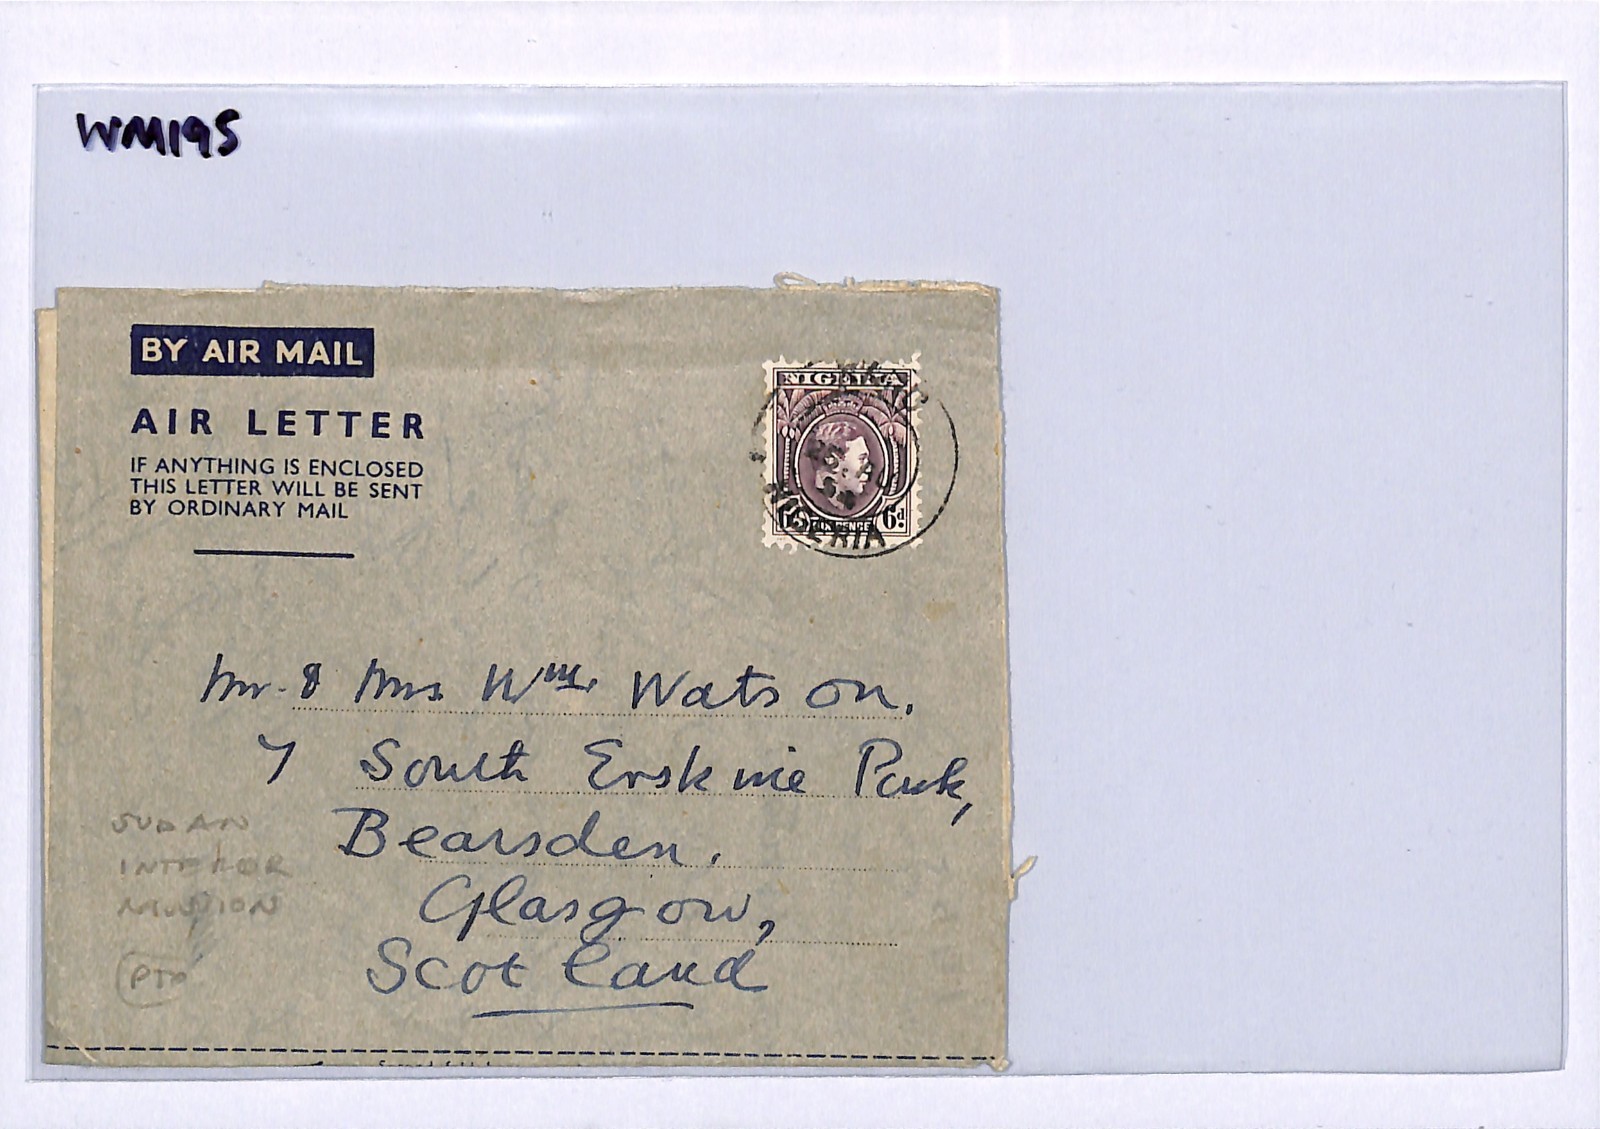 WM195
BY AIR MAIL
AIR LETTER
IF ANYTHING IS ENCLOSED
THIS LETTER WILL BE SENT
BY ORDINARY MAIL
NIGERIA
SIXPENCE 6d
NIGERIA
Mr. & Mrs Wm. Watson.
7 South Erskine Park,
Bearsden.
Glasgow,
Scotland
SUDAN
INTERIOR
MISSION
PTO